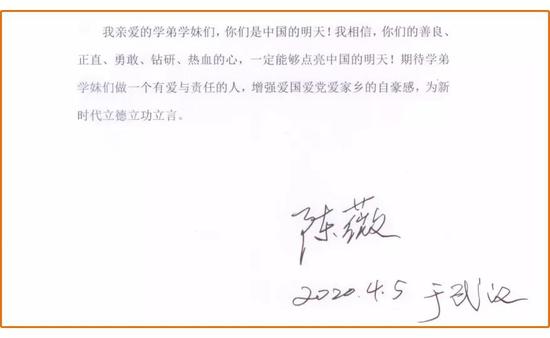 我亲爱的学弟学妹们，你们是中国的明天！我相信，你们的善良、
正直、勇敢、钻研、热血的心，一定能够点亮中国的明天！期待学弟
学妹们做一个有爱与责任的人，增强爱国爱党爱家乡的自豪感，为新
时代立德立功立言。
陈薇
2020.4.5 于武汉